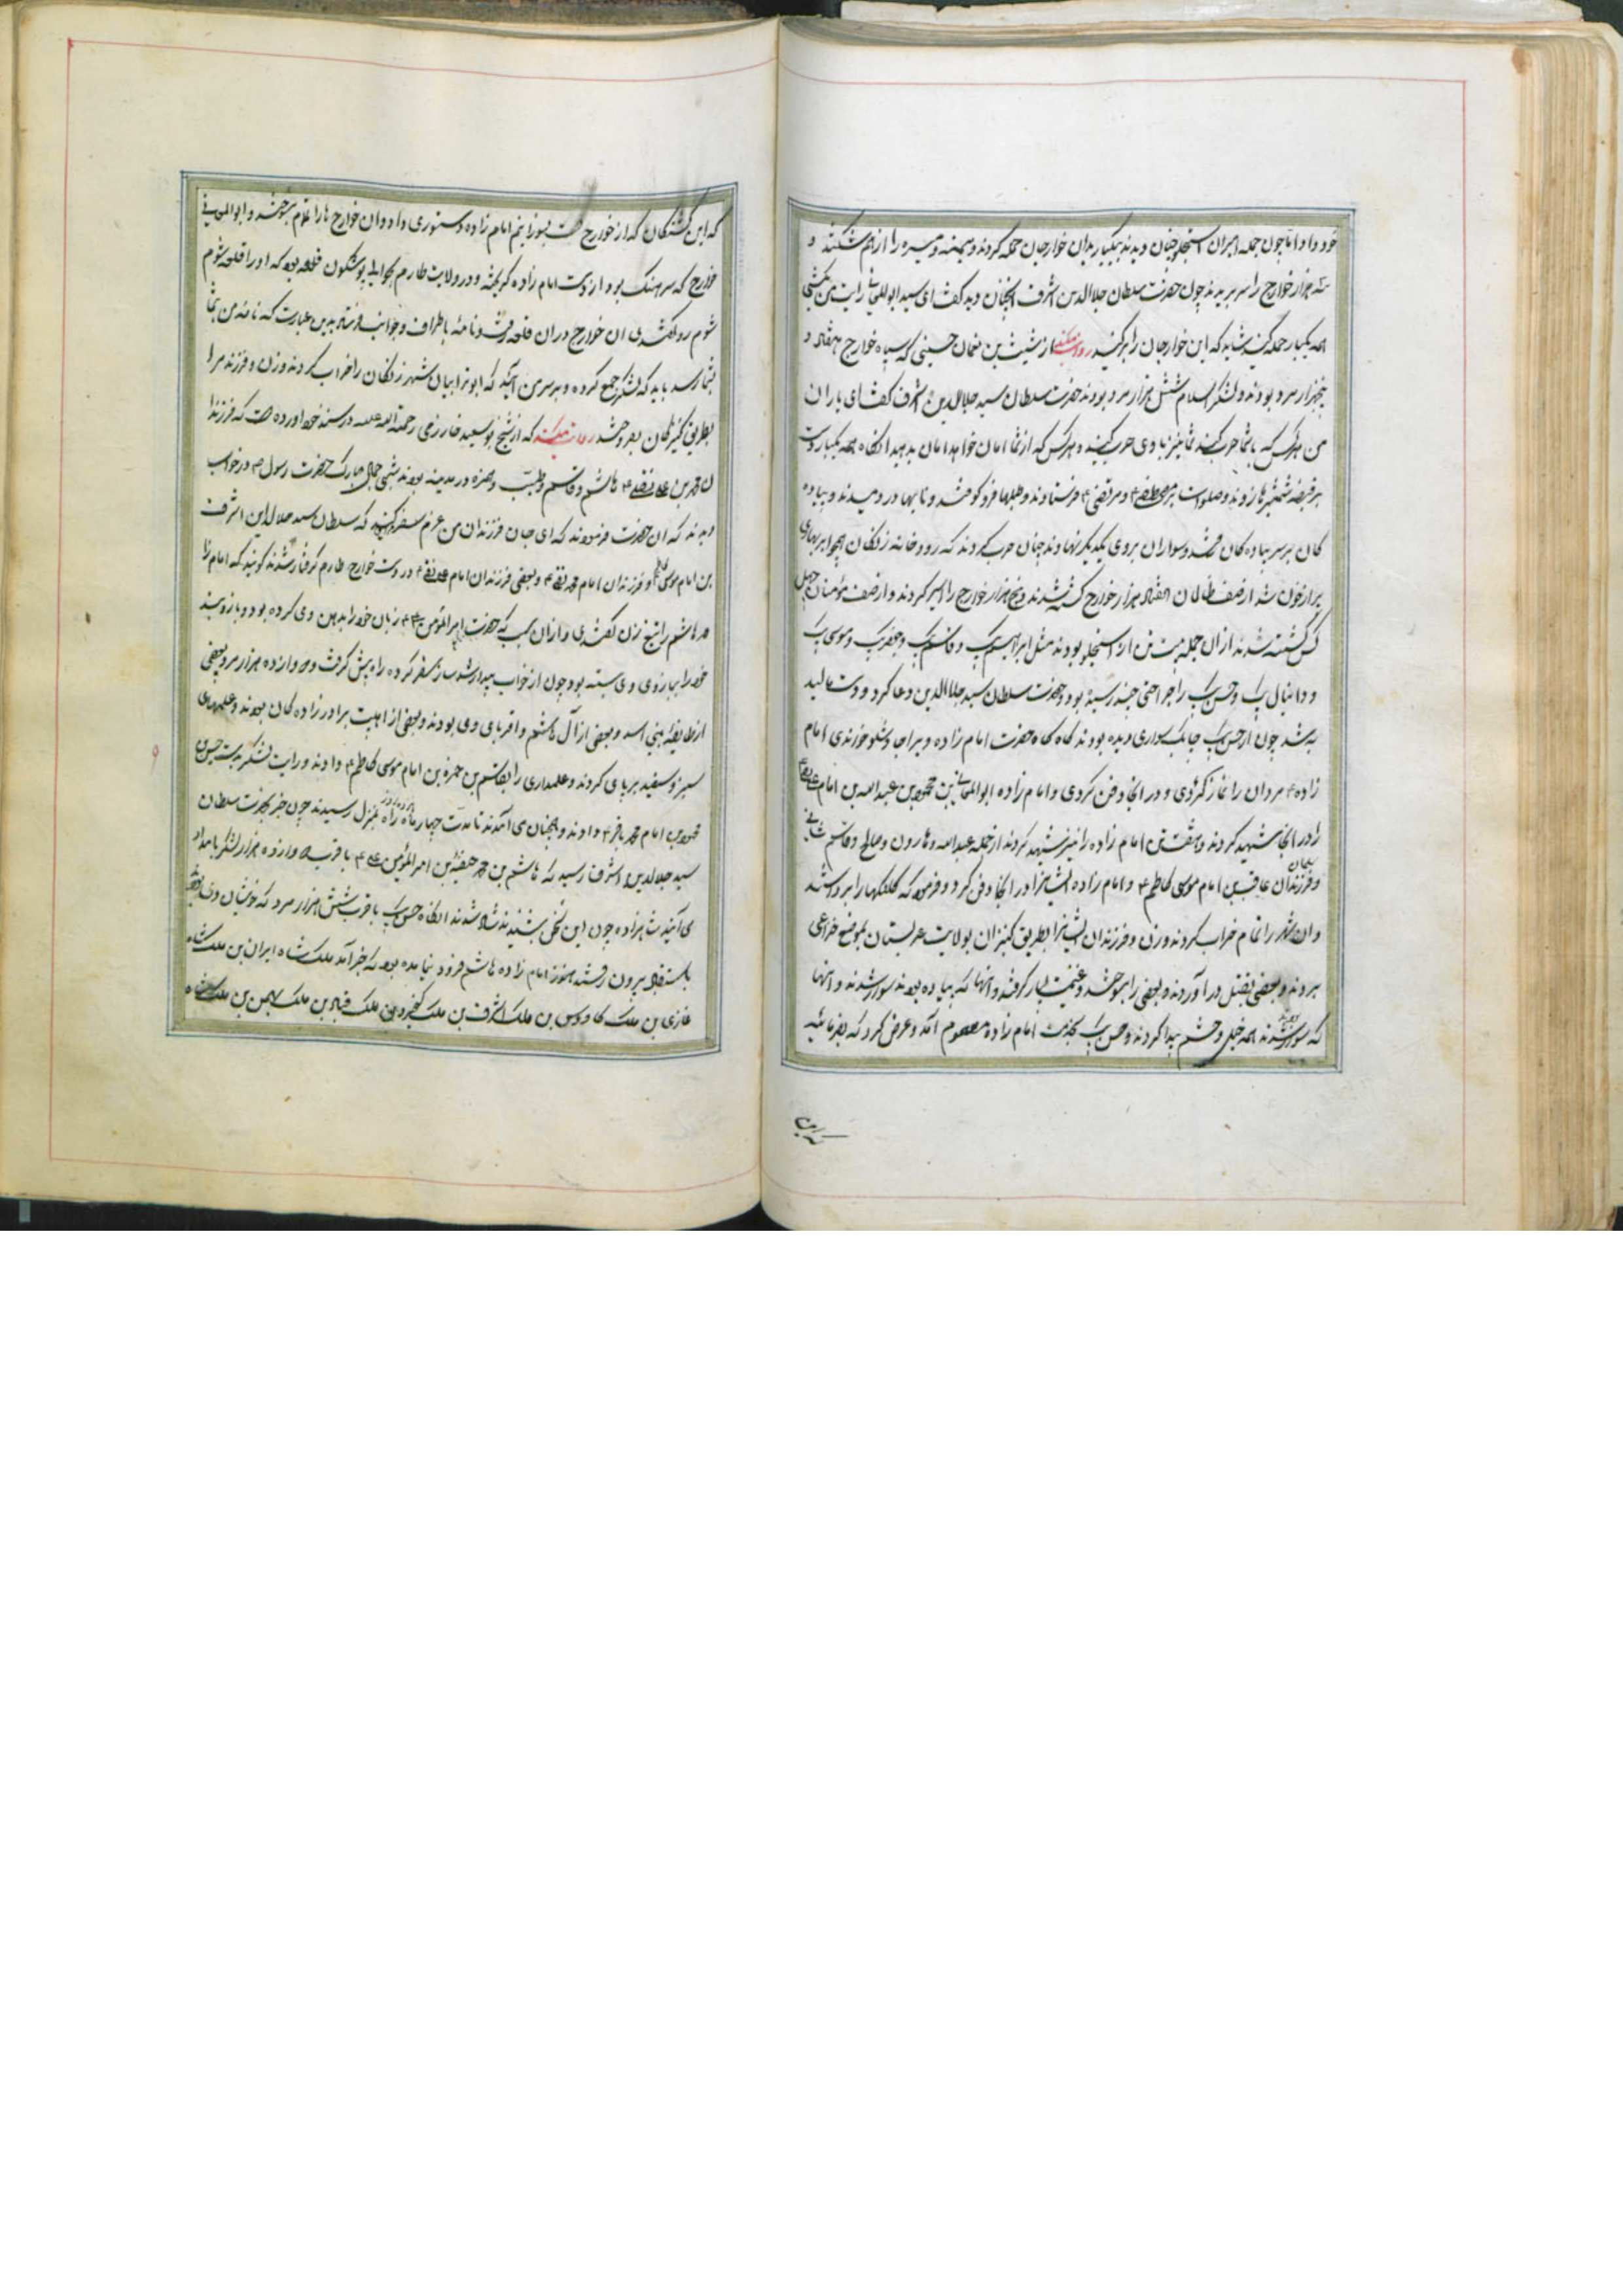 خود داد اما چون جمله امیران استجلو چنان دیدند بیکبار بدان خوارجان حمله کردند و میمنه و میسره را از هم شکستند و
سه هزار خوارج را سر بریدند چون حضرت سلطان جلال الدین اشرف انچنان دید گفت ای سید ابوالمعالی رایت من بکش
همه یکبار حمله کنید شاید که این خوارجان را برکنید روایت میکند از شیث بن نعمان حسینی که سپاه خوارج هفتاد و
پنجهزار مرد بودند و لشکر اسلام شش هزار مرد بودند حضرت سلطان سید جلال الدین اشرف گفت ای یاران
من هرکس که با شما حرب کنید شما نیز با وی حرب کنید و هرکس که از شما امان خواهد امان بدهید انگاه همه یکبار دست
بر قبضه شمشیرها زوند و صلوات بر مصطفی و مرتضی فرستادند و طبلها فرو کوفتند و نایها در دمیدند و پیاده
کان بر سر پیاده کان و سواران بروی یکدیگر نهادند چنان حرب کردند که رودخانه زنکان
برار خون شد از صف ظالمان هفتاد هزار خوارج کشته شدند و پنج هزار خوارج را اسیر کردند و از صف مؤمنان چهل
کس کشته شدند از ان جمله بیست تن از استجلو بودند مثل ابراهیم بک و قاسم بک و جعفر بک و موسی بک
و دانیال بک و حسن بک را جراحتی چند رسیده بود و حضرت سلطان سید جلال الدین دعا کرد و دست مالید
به شد چون از حسن بک چابک سواری دیده بودند گاه گاه حضرت امام زاده ویرا خواندی امام
زاده مردان را نماز کردی و در انجا دفن کردی و امام زاده ابوالمعالی بن محمد بن عبدالله بن امام
را در انجا شهید کردند و هفت تن امام زاده را نیز شهید کردند از جمله عبدالله و هارون و صالح و قاسم
و فرزندان امام موسی کاظم و امام زاده ایشانرا در انجا دفن کرد و فرمود که
وان شهر را تمام خراب کردند و زن و فرزندان ایشانرا بطریق کنیزان بولایت عربستان بموضع خزاعی
بردند و بعضی بقتل در آوردند و بعضی را و غنیمت بسیار گرفتند و انها که پیاده بودند سوار شدند و انها
که سوار بودند همه خیل و حشم پیدا کردند و حسن بک بخدمت امام زاده معصوم آمد و عرض کرد که بفرمائید
که این کشتگان که از خوارج است بسوزانیم امام زاده دستوری داد و ان خوارج ها را تمام بسوختند و ابوالمعالی
خوارج که سرهنگ بود از دست امام زاده گریخته و در ولایت طارم قلعه بود که او را قلعه شوم
شوم رو گفتندی ان خوارج در ان قلعه رفت و نامه باطراف و جوانب فرستاد بدین عبارت که نامه من بشما
بشما رسد باید که لشکر جمع کرده و بر سر من آیید که ابوترابیان شهر زنکان را خراب کردند و زن و فرزند مرا
بطریق کنیزکان بفروختند روایت میکند که از شیخ ابوسعید خارزمی رحمة الله علیه در سند خود اورده است که فرزندا
ن محمد بن علی نقی هاشم و قاسم و طیب و حمزه در مدینه بودند شبی جمال مبارک حضرت رسول در خواب
دیدند که ان حضرت فرمودند که ای جان فرزندان من عزم سفر کنید که سلطان سید جلال الدین اشرف
بن امام موسی کاظم و فرزندان امام محمد تقی و بعضی فرزندان امام علی نقی در دست خوارج طارم گرفتار شدند گویند که امام زا
ده هاشم را تیغ زن گفتندی و از ان سبب که حضرت امیر المؤمنین زبان خود را بدهن وی کرده بود و بازوبند
خود را ببازوی وی بسته بود چون از خواب بیدار شد ساز سفر کرده راه پیش گرفت و دوازده هزار مرد بعضی
از طایفه بنی اسد و بعضی از آل هاشم و اقربای وی بودند و بعضی از اهلبیت برادر زاده کان بودند و علمهای
سبز و سفید بر پای کردند و علمداری را بقاسم بن حمزه بن امام موسی کاظم دادند و رایت لشکر بدست حسن
بن امام محمد باقر دادند و همچنان می آمدند تا مدت چهار ماه راه بمنزل رسیدند چون خبر بحضرت سلطان
سید جلال الدین اشرف رسید که هاشم بن محمد حنفیه بن امیر المؤمنین علی با قریب دوازده هزار لشکر بامداد
می آیند شاهزاده چون این سخن بشنیدند شاد شدند انگاه حسن بک با قرب شش هزار مرد که خویشان وی بودند
باستقبال بیرون رفتند هنوز امام زاده هاشم فرود نیامده بود که خبر آمد ملک شاه ایران بن ملک شاه
غازی بن ملک کاوس بن ملک اشرف بن ملک کیخسرو بن ملک قباد بن ملک بهمن بن ملک